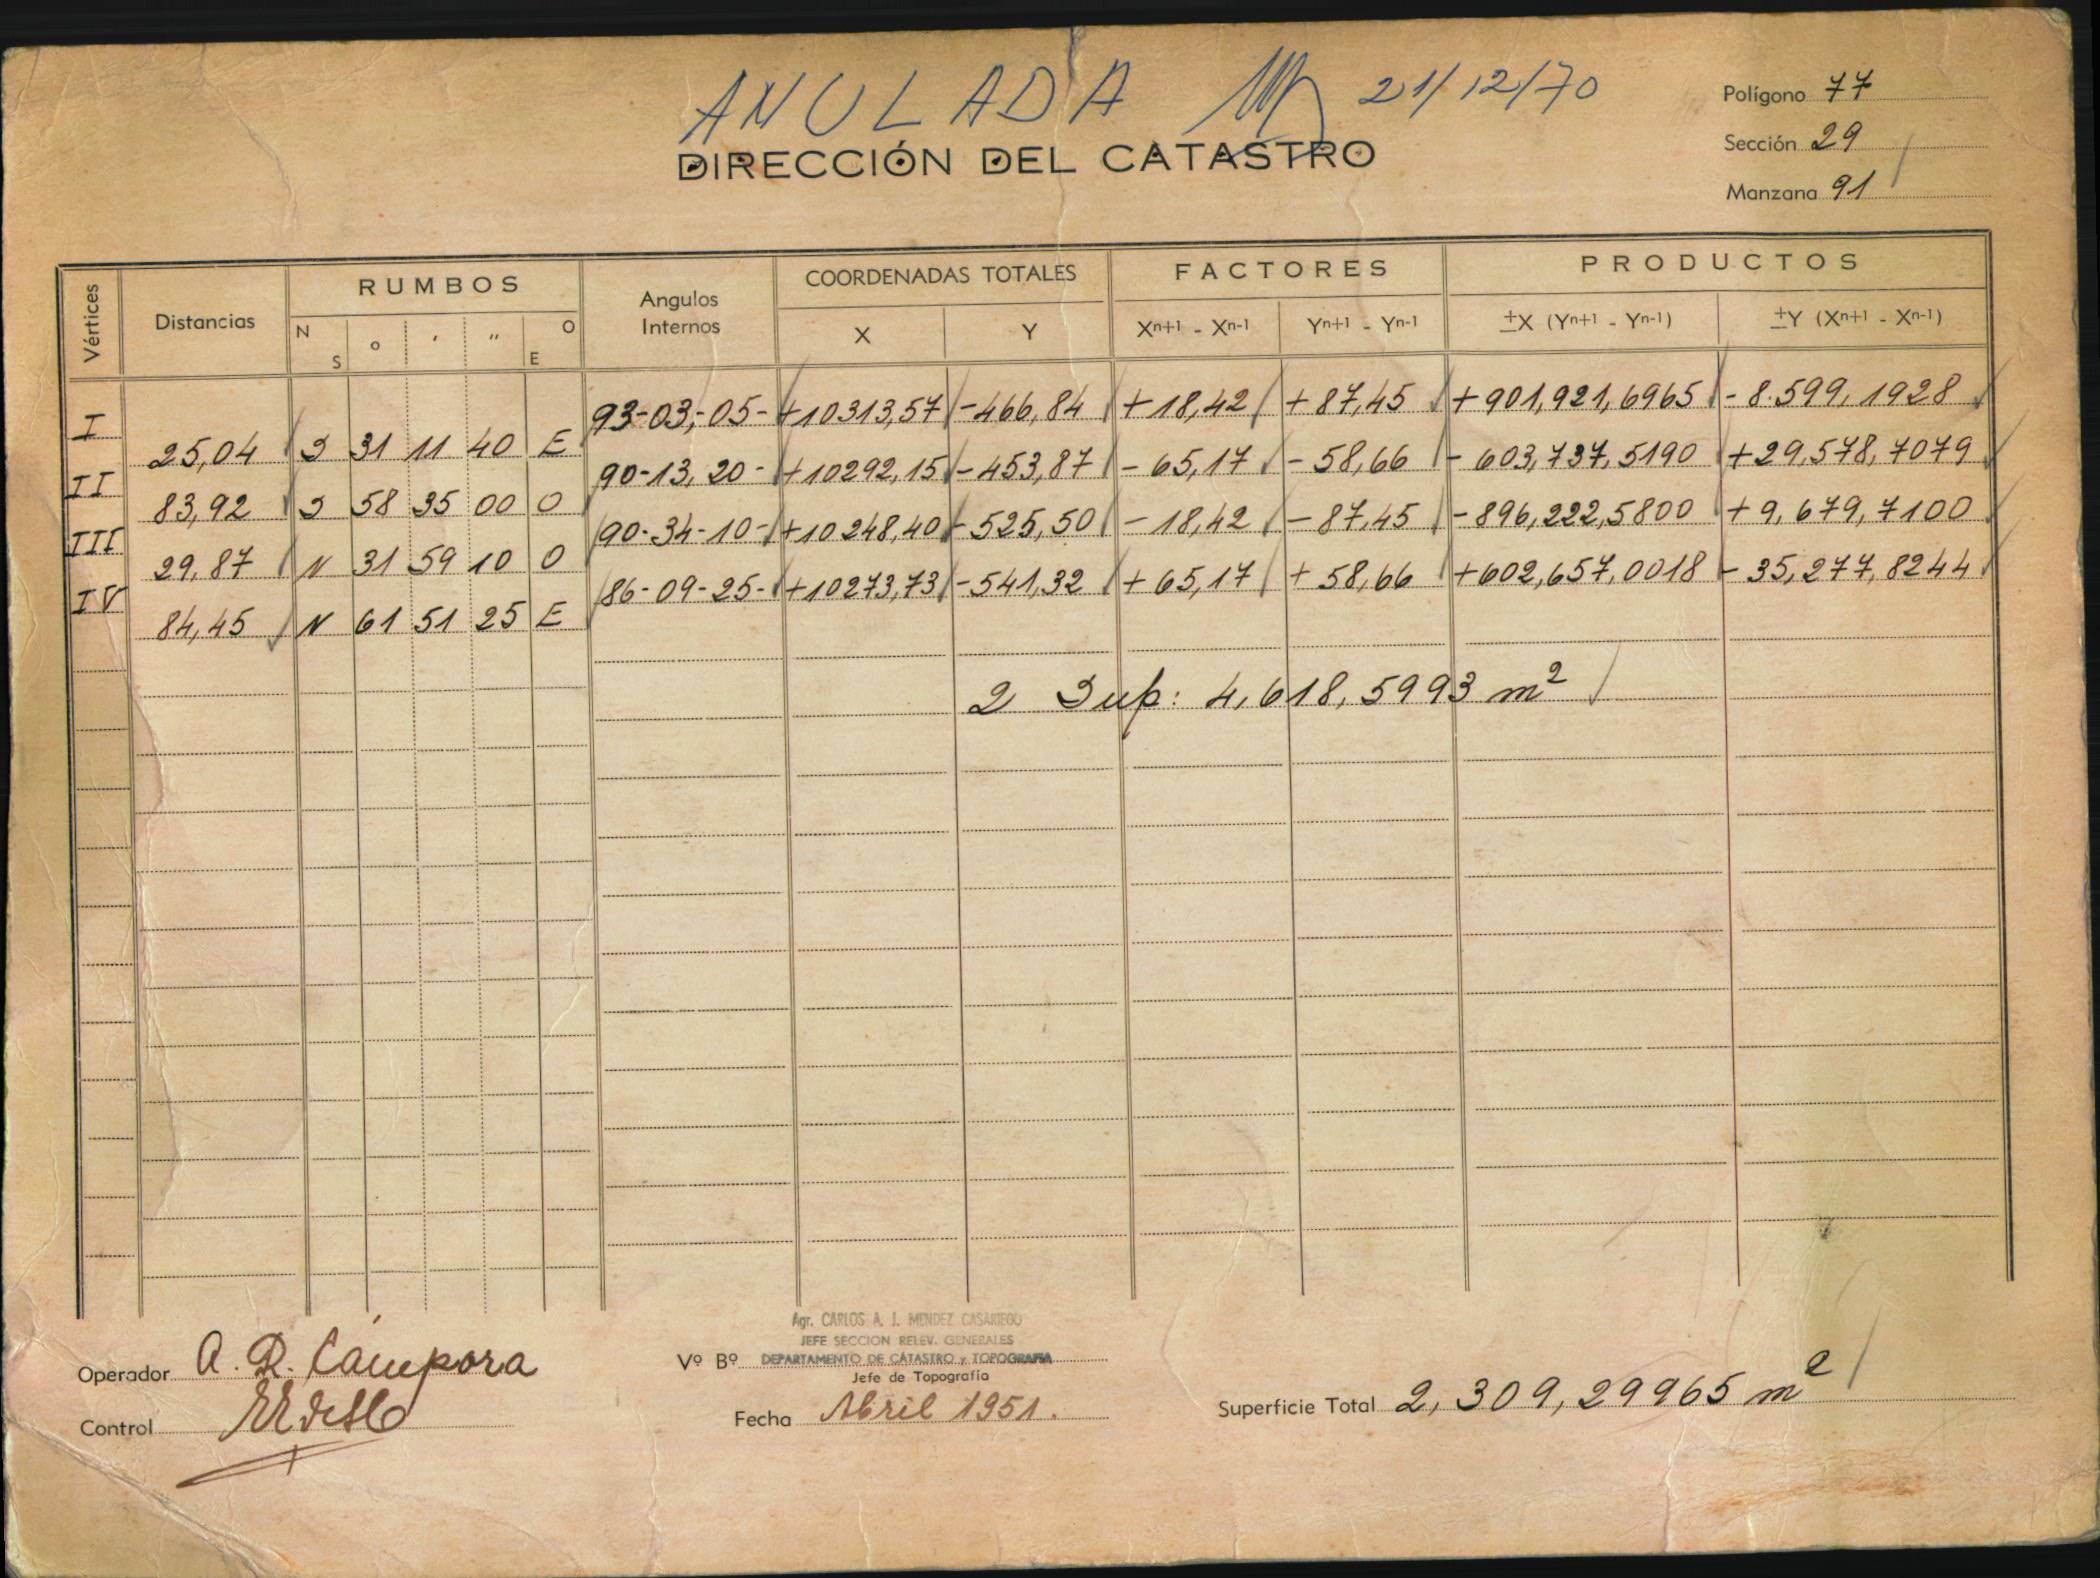 ANULADA 21/12/70
DIRECCIÓN DEL CATASTRO
Polígono 77
Sección 29
Manzana 91
Vértices Distancias RUMBOS Angulos Internos COORDENADAS TOTALES FACTORES PRODUCTOS
N S o ' '' E O X Y Xn+1 - Xn-1 Yn+1 - Yn-1 ±X (Yn+1 - Yn-1) ±Y (Xn+1 - Xn-1)
I 93-03,-05- +10313,57 -466,84 +18,42 +87,45 +901,921,6965 -8.599,1928
25,04 S 31 11 40 E
II 90-13,20- +10292,15 -453,87 -65,17 -58,66 -603,737,5190 +29,578,7079
83,92 S 58 35 00 O
III 90-34-10- +10248,40 -525,50 -18,42 -87,45 -896,222,5800 +9,679,7100
29,87 N 31 59 10 O
IV 86-09-25- +10273,73 -541,32 +65,17 +58,66 +602,657,0018 -35,277,8244
84,45 N 61 51 25 E
2 Sup: 4,618,5993 m²
Operador A. R. Cámpora
Control
Agr. CARLOS A. J. MENDEZ CASARIEGO
JEFE SECCION RELEV. GENERALES
Vº Bº DEPARTAMENTO DE CATASTRO y TOPOGRAFIA
Jefe de Topografía
Fecha Abril 1951.
Superficie Total 2,309,29965 m²